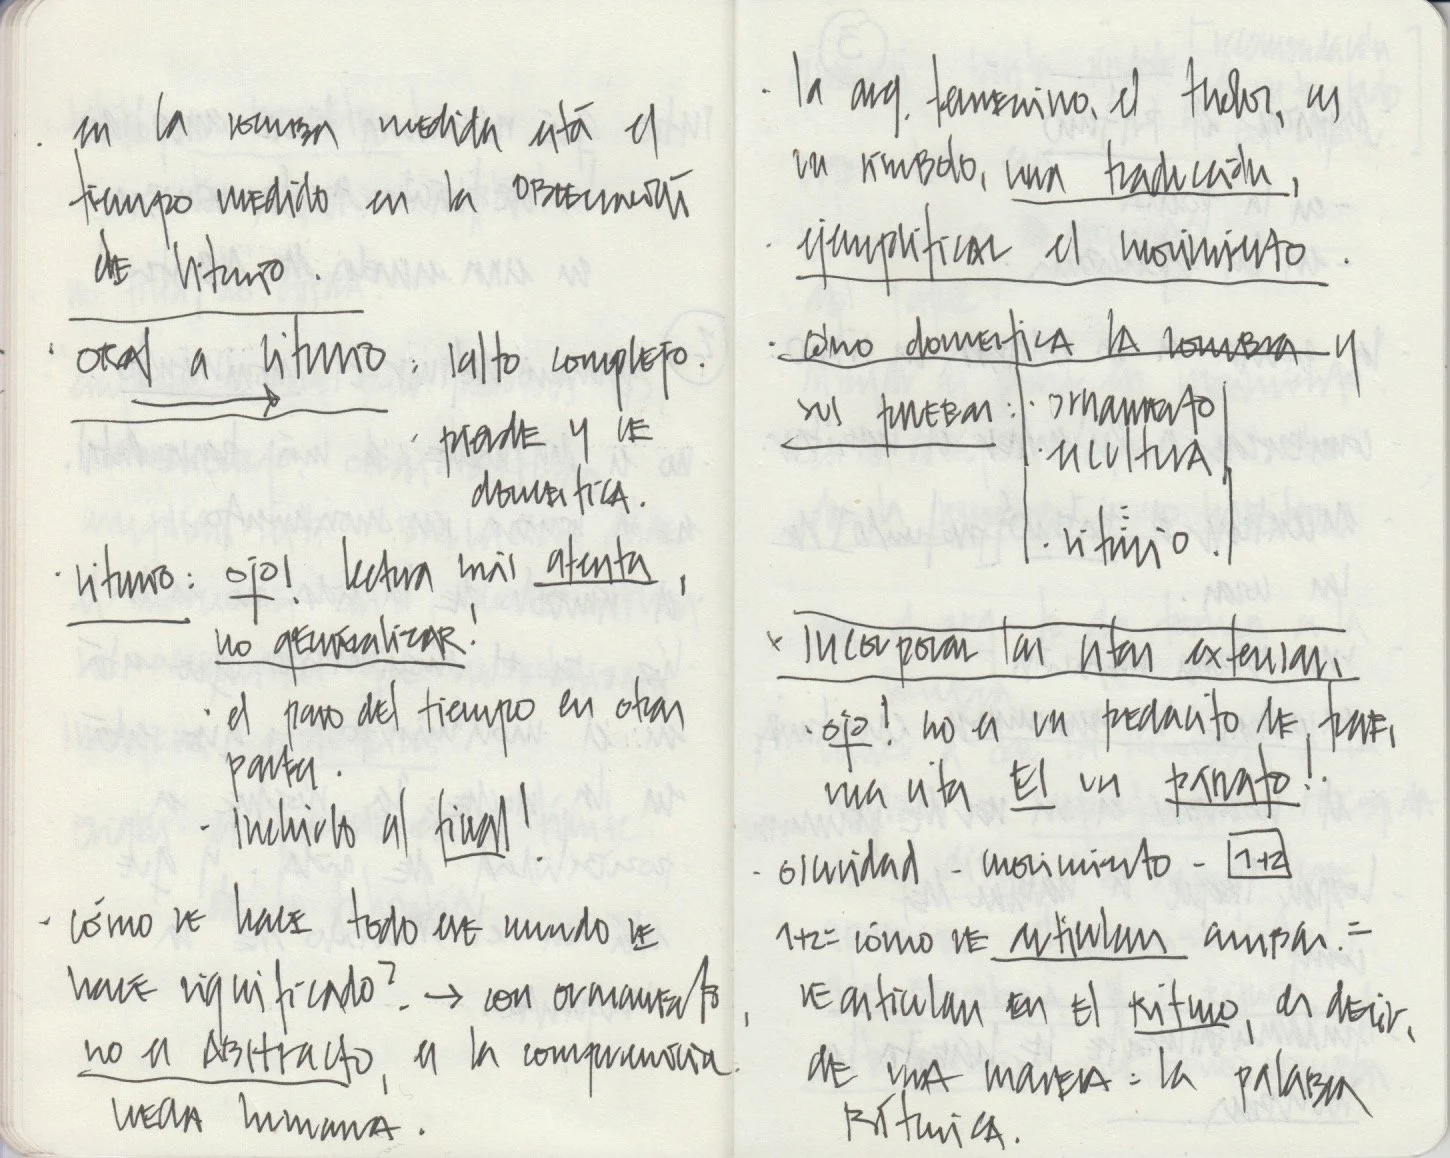 · en la sombra medida está el
tiempo medido en la observación
de ritmo.
· oral a ritmo: salto completo.
· pierde y se
domestica.
· ritmo: ojo! lectura más atenta,
no generalizar!
· el paso del tiempo en otras
partes.
- incluirlo al final!
· cómo se hace todo ese mundo se
hace significado? → con ornamento,
no es abstracto, es la comparecencia
hecha humana.
· la arq. femenino, el tholos, es
un símbolo, una traducción,
· ejemplificar el movimiento.
· cómo domestica la sombra y
sus pruebas: · ornamento
· escultura
=
· ritmo.
× Incorporar las citas externas,
· ojo! no es un pedacito de frase,
una cita es un párrafo!
· oscuridad - movimiento - 1+2
1+2 = cómo se articulan ambas. =
se articulan en el ritmo, es decir,
de una manera = la palabra
rítmica.